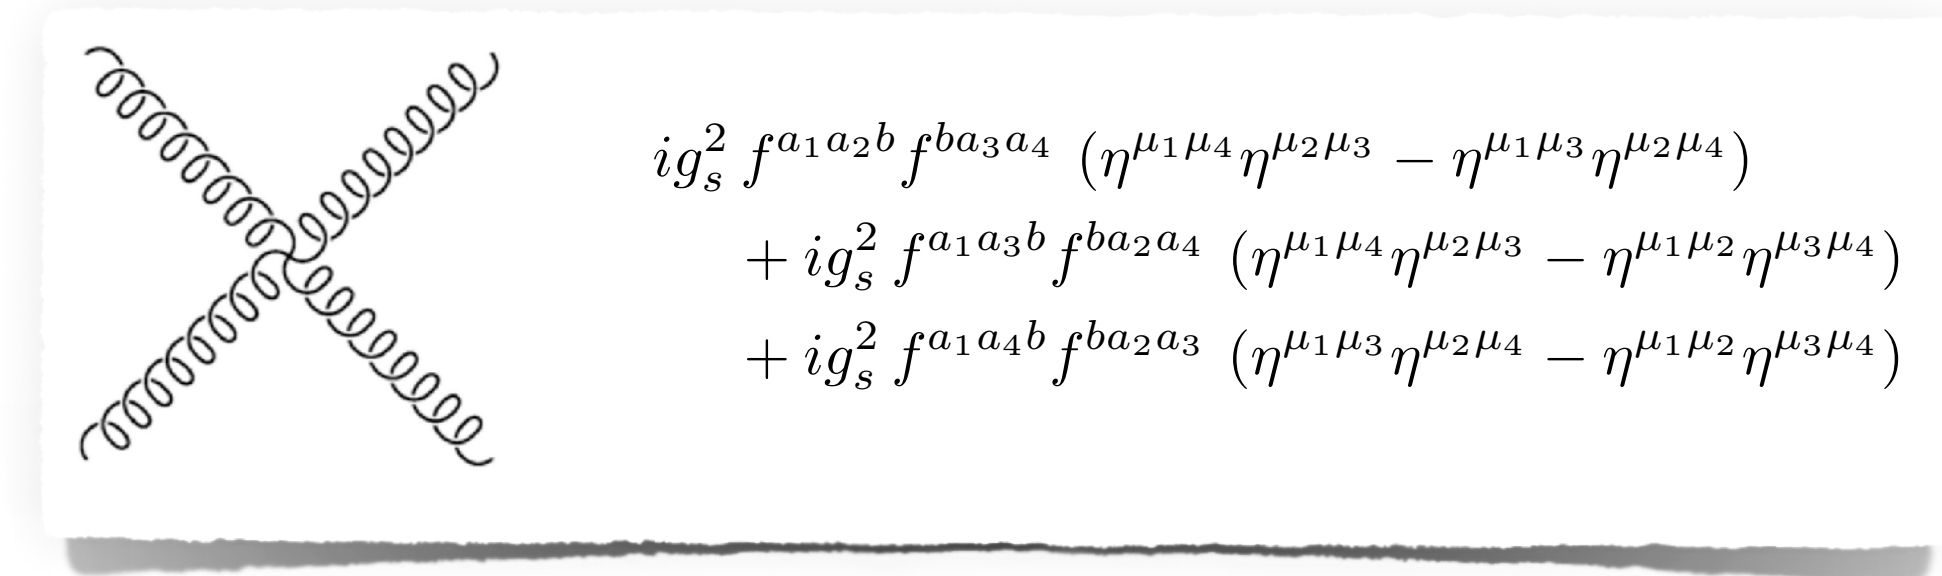 $ig_s^2 \, f^{a_1 a_2 b} f^{b a_3 a_4} \, (\eta^{\mu_1 \mu_4} \eta^{\mu_2 \mu_3} - \eta^{\mu_1 \mu_3} \eta^{\mu_2 \mu_4})$
$+ \, ig_s^2 \, f^{a_1 a_3 b} f^{b a_2 a_4} \, (\eta^{\mu_1 \mu_4} \eta^{\mu_2 \mu_3} - \eta^{\mu_1 \mu_2} \eta^{\mu_3 \mu_4})$
$+ \, ig_s^2 \, f^{a_1 a_4 b} f^{b a_2 a_3} \, (\eta^{\mu_1 \mu_3} \eta^{\mu_2 \mu_4} - \eta^{\mu_1 \mu_2} \eta^{\mu_3 \mu_4})$